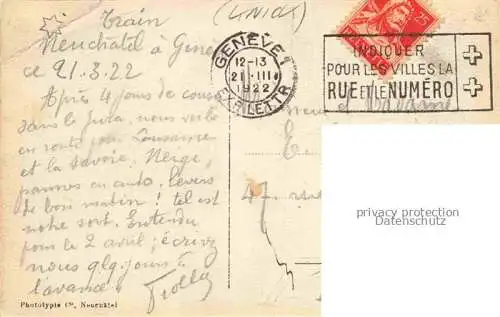 Train
Neuchâtel à Genè
ce 21.3.22
Après 4 jours de cours
dans le Jura, nous voilà
en route pour Lausanne
et la Savoie. Neige,
pannes en auto, levers
de bon matin! tel est
notre sort. Entendu
pour le 2 avril; écrivez
nous qlq. jours à
l'avance!
Phototypie Co, Neuchâtel
GENÈVE 1
12-13
21.III
1922
EXP. LETTR.
25
INDIQUER
POUR LES VILLES LA
RUE ET LE NUMÉRO
et Madame
47, rue
privacy protection
Datenschutz